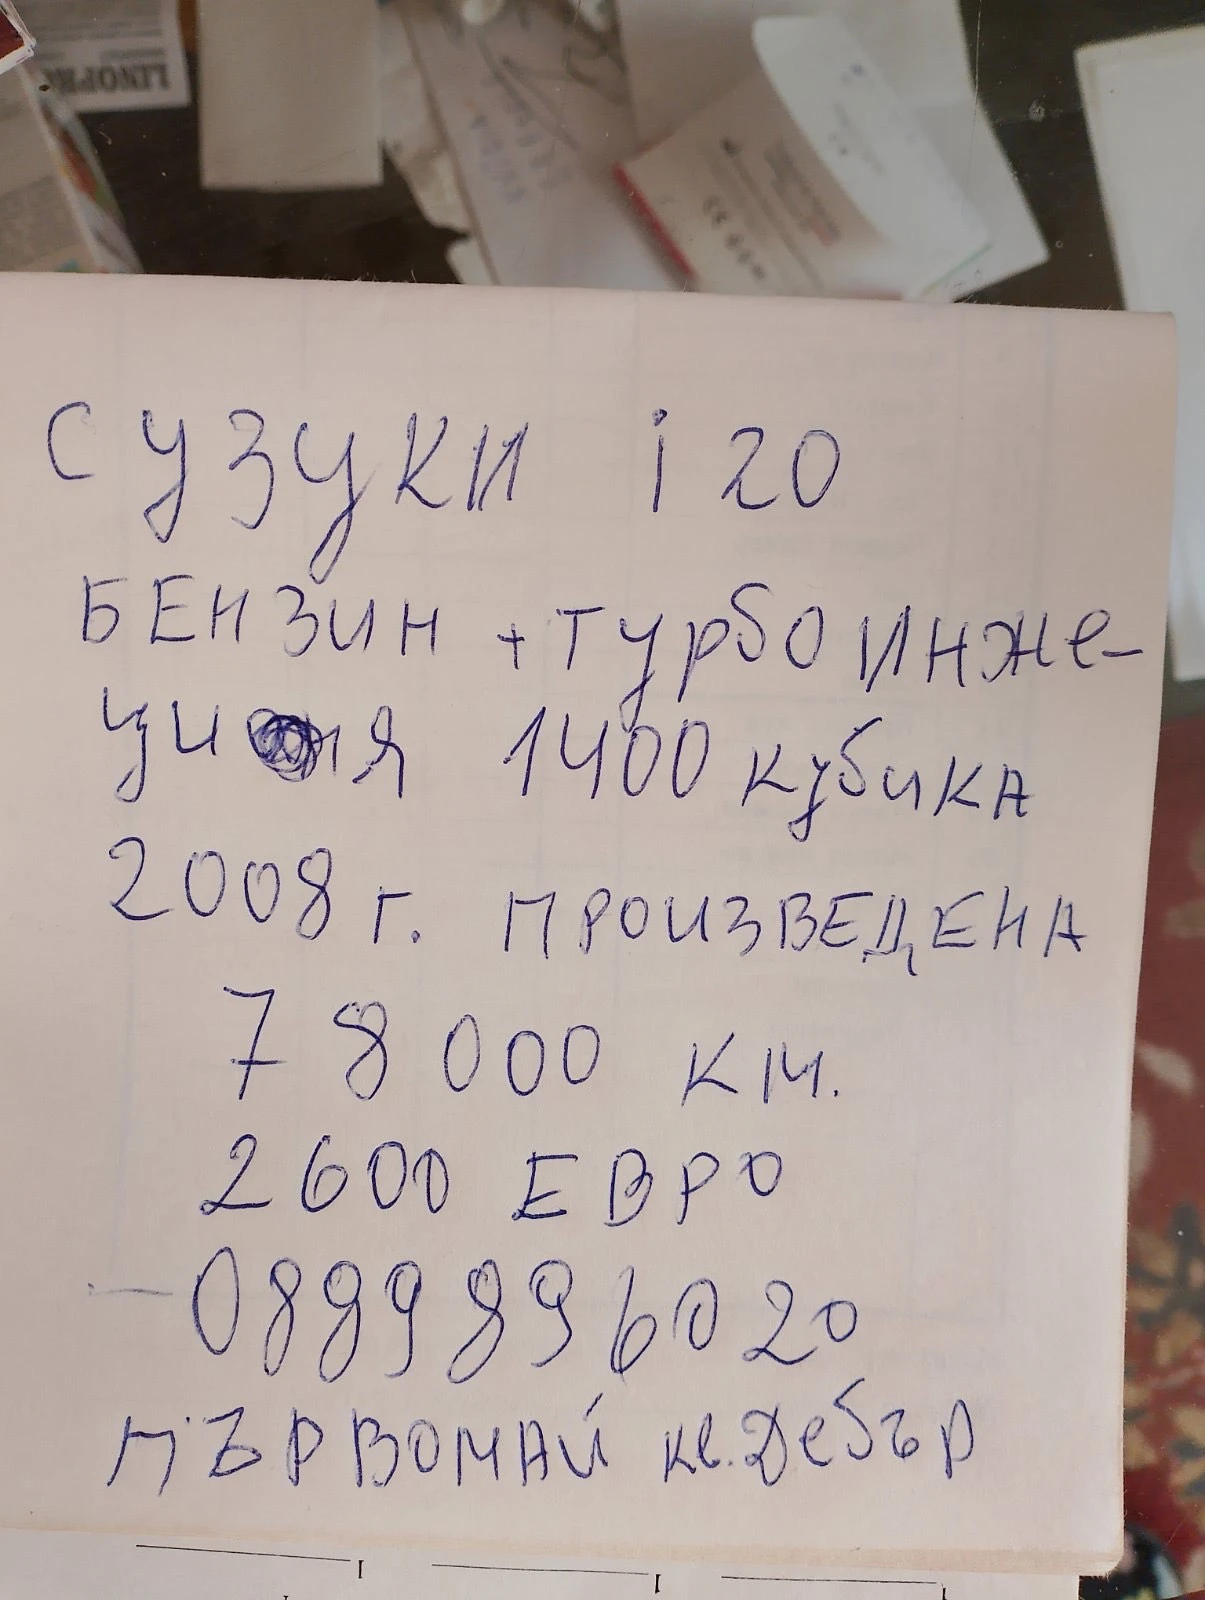 LINOPRIL
CE
СУЗУКИ i 20
БЕНЗИН + Турбо ИНЖе-
циня 1400 кубика
2008 г. ПРОИЗВЕДЕНА
78 000 км.
2600 ЕВРО
0889896020
ПЪРВОМАЙ кв. Дебър